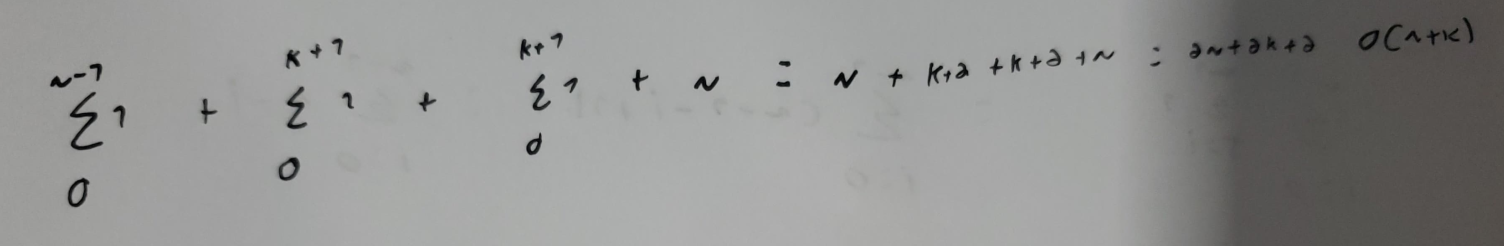 \sum_{0}^{n-1} 1 + \sum_{0}^{k+1} 1 + \sum_{0}^{k+1} 1 + n = n + k+2 + k+2 + n = 2n+2k+2 O(n+k)